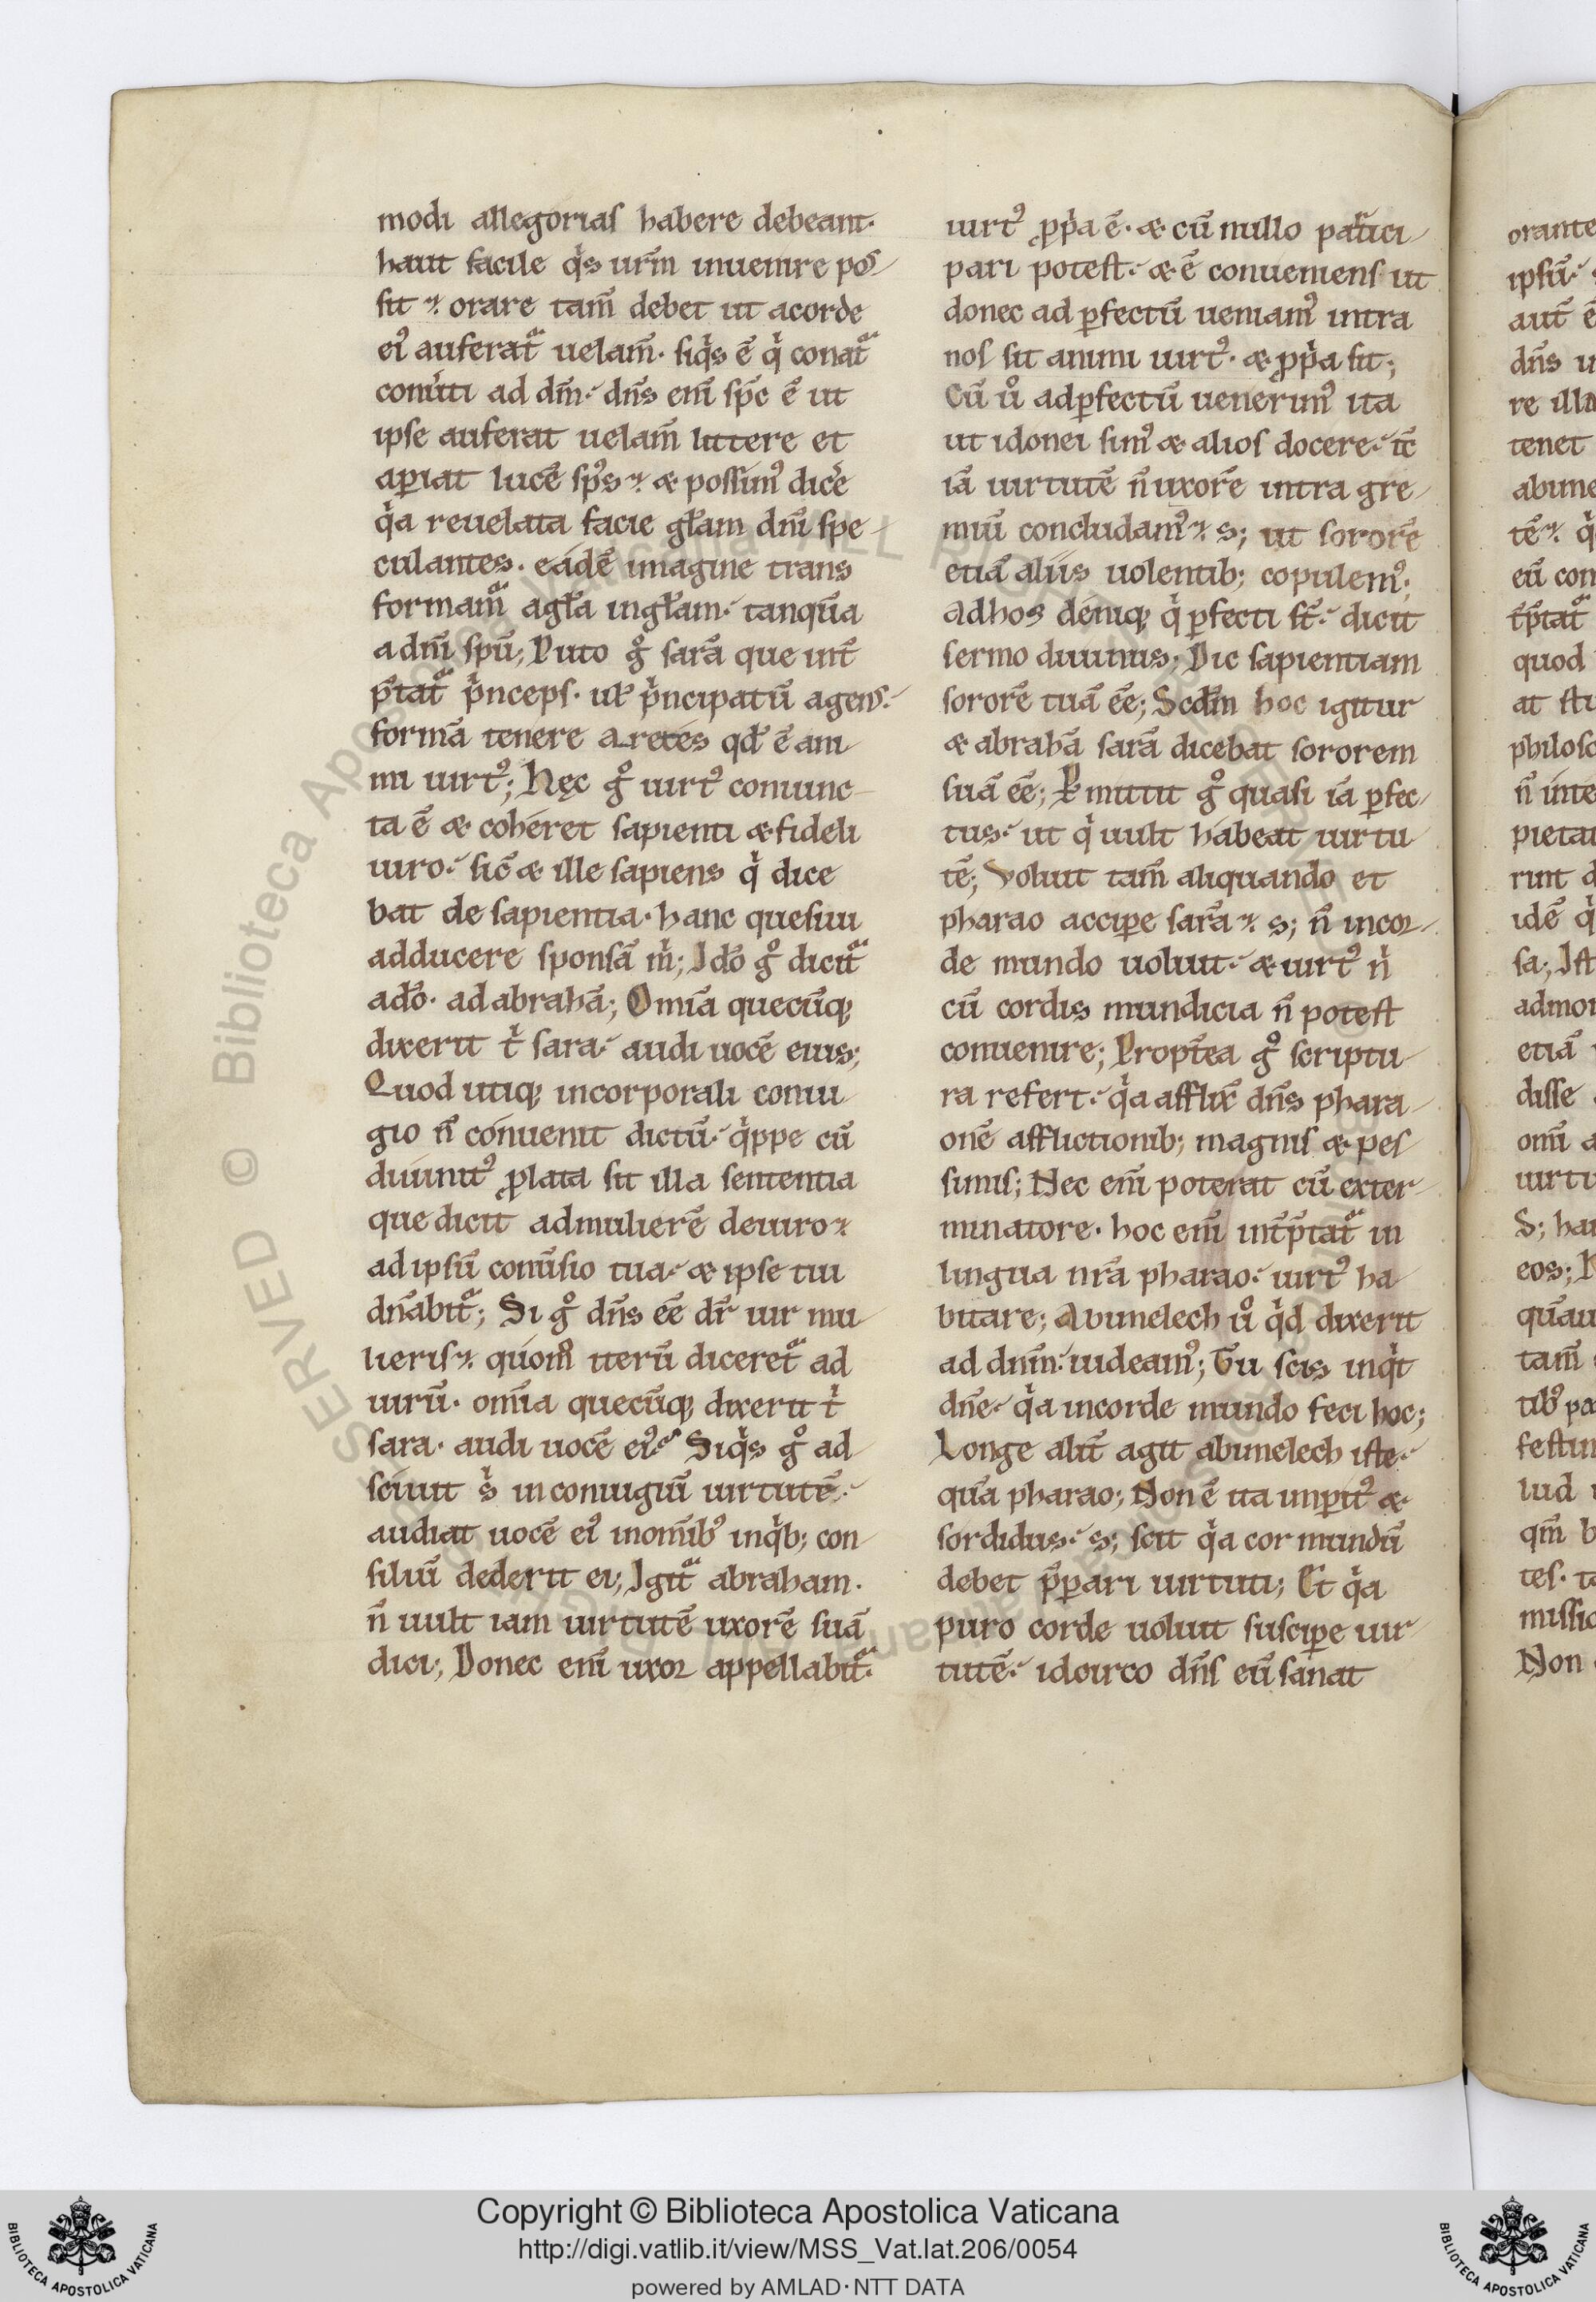 modi allegorias habere debeant·
haut facile q̇s ur̄m inuenire pos
sit⁊ orare tam̄ debet ut acorde
ei᾽ auferat᷑ uelam̄· siq̇s ē q̇ conat᷑
conu̇ti ad dm̄· dn̄s eni̅ sp̄c ē ut
ipse auferat uelam̄ littere et
aperiat lucē sp̄s⁊ æ possim᾽ dic̄e
q̇a reuelata facie gl̄am dn̄i spe
culantes· eádē imagine trans
formam᷑ agl̄a ingl̄am· tanqua̅
a dn̄i spū; Puto gͦ sarā que int̄
p̄tat᷑ ṗnceps· ul̄ ṗncipatū agens·
formā tenere aretes qd̄ ē ani
mi uirt᾽; Hęc gͦ uirt᾽ coniunc
ta ē æ coheret sapienti æ fideli
uiro· sic̄ æ ille sapiens q̇ dice
bat de sapientia· hanc quesiui
adducere sponsā ṁ; Idō gͦ dicit᷑
adō· ad abrahā; Omīa quecūq;
dixerit ṫ sara· audi uocē eius;
Quod utiq; incorporali coniu
gio n̄ conuenit dictū· q̇ppe cū
diuinit᾽ ꝓlata sit illa sententia
que dicit admulierē deuiro⁊
ad ipsū conu̅sio tua· æ ipse tui
dn̄abit᷑; Si gͦ dn̄s eē dr̄ uir mu
lieris⁊ quom̊ iterū diceret᷑ ad
uirū· omīa quecūq; dixerit ṫ
sara· audi uocē ei᾽· Siq̇s gͦ ad
sciuit ṡ inconiugiū uirtutē·
audiat uocē ei᾽ inomīb᾽ inq̇b; con
siliū dederit ei; Igit᷑ abraham·
n̄ uult iam uirtutē uxorē suā
dici; Donec eni̅ uxor appellabit᷑·
uirt᾽ ꝓṗa ē· æ cū nullo patici
pari potest· æ ē conueniens ut
donec ad ꝑfectū ueniam᾽ intra
nos sit animi uirt᾽· æ ꝓṗa sit;
Cū ů adꝑfectū uenerim᾽ ita
ut idonei sim᾽ æ alios docere· tc̄
iā uirtutē n̄ uxorē intra gre
miū concludam᾽⁊ s; ut sororē
etiā aliis uolentib; copulem᾽;
Adhos deniq; q̇ ꝑfecti st̄· dicit
sermo diuinus; Dic sapientiam
sororē tuā eē; Scdm̄ hoc igitur
æ abrahā sarā dicebat sororem
suā eē; Ꝑmittit gͦ quasi iā ꝑfec
tus· ut q̇ uult habeat uirtu
tē; Voluit tam̄ aliquando et
pharao acciꝑe sarā⁊ s; n̄ incor
de mundo uoluit· æ uirt᾽ ṅ
cū cordis mundicia n̄ potest
conuenire; Propt̄ea gͦ scriptu
ra refert· q̇a afflix̄ dn̄s phara
onē afflictionib; magnis æ pes
simis; Nec eni̅ poterat cū exter
minatore· hoc eni̅ int̄p̄tat᷑ in
lingua nr̄a pharao· uirt᾽ ha
bitare; Abimelech ů q̇d dixerit
ad dn̄m· uideam᾽; Tu scis inq̇t
dn̄e· q̇a incorde mundo feci hoc;
Longe alit̄ agit abimelech iste·
qua̅ pharao; Non ē ita imꝑit᾽ æ
sordidus· s; scit q̇a cor mundū
debet p̄ꝑari uirtuti; Et q̇a
puro corde uoluit susciꝑe uir
tutē· idcirco dn̄s eū sanat
Copyright © Biblioteca Apostolica Vaticana
http://digi.vatlib.it/view/MSS_Vat.lat.206/0054
powered by AMLAD·NTT DATA